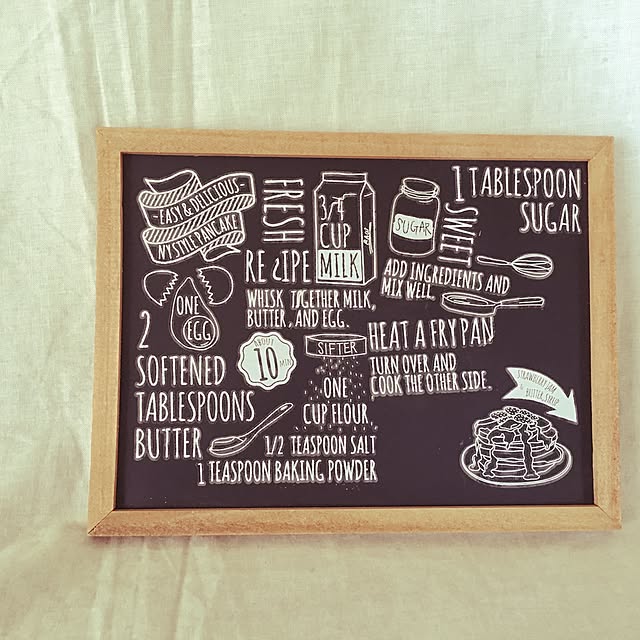 -EASY & DELICIOUS-
NY STYLE PANCAKE
FRESH
3/4
CUP
MILK
SUGAR
SWEET
1 TABLESPOON
SUGAR
RECIPE
WHISK TOGETHER MILK,
BUTTER, AND EGG.
ADD INGREDIENTS AND
MIX WELL.
ONE
EGG
2
SOFTENED
TABLESPOONS
BUTTER
ABOUT
10 MIN
SIFTER
ONE
CUP FLOUR
1/2 TEASPOON SALT
1 TEASPOON BAKING POWDER
HEAT A FRY PAN
TURN OVER AND
COOK THE OTHER SIDE.
STRAWBERRY JAM
&